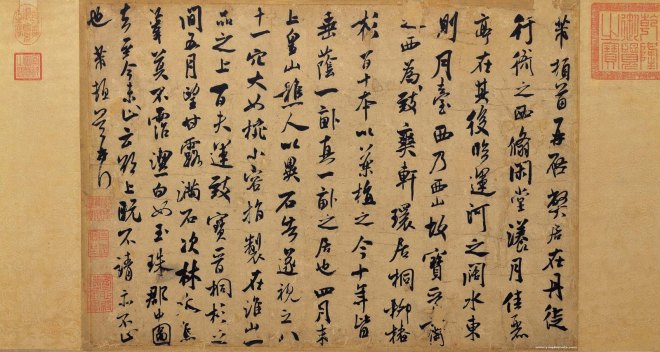 芾頓首再啟弊居在丹徒
行衙之西翛閑堂漾月佳麗
亭在其後臨運河之闊水東
則月臺西乃西山故寶晉齋
之西為致爽軒環居桐柳椿
杉百十本以藥植之今十年皆
垂蔭一畝真一畝之居也四月末
上皇山樵人以異石告遂視之八
十一穴大如椀小容指製在淮山一
品之上百夫運致寶晉桐杉之
間五月望甘露滿石次林木焉
葦莫不霑潔白如玉珠郡中圖
去至今未止云欲上既不請亦不止
也芾頓首